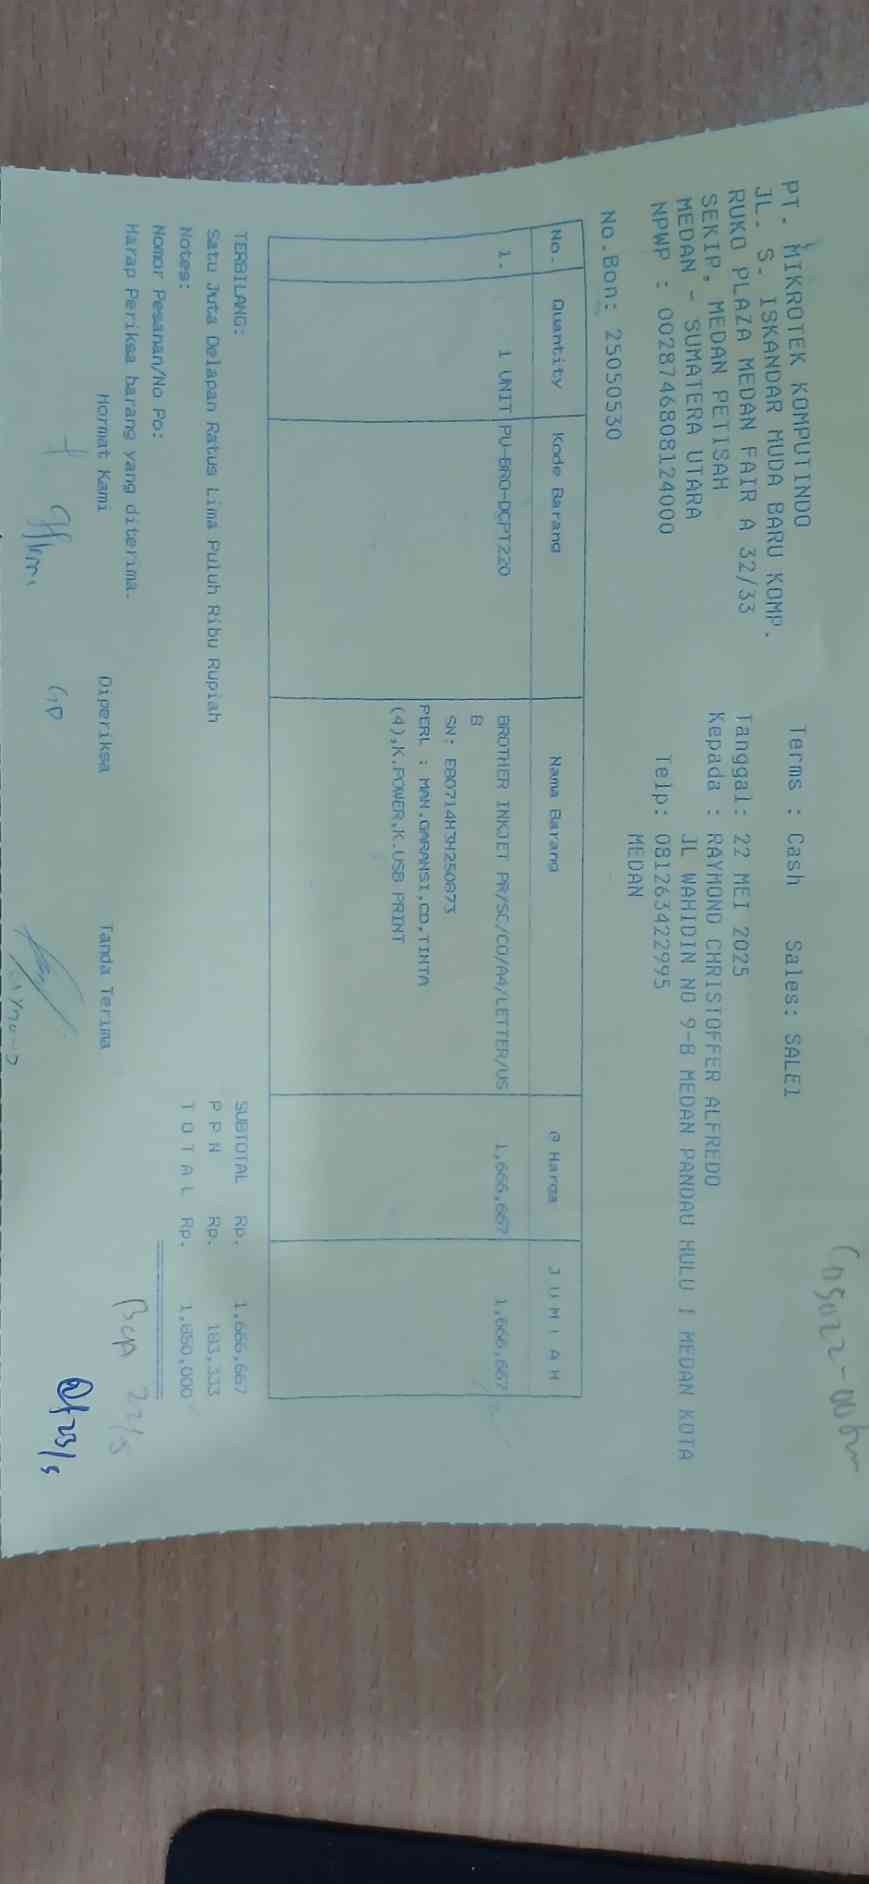 PT. MIKROTEK KOMPUTINDO
JL. S. ISKANDAR MUDA BARU KOMP.
RUKO PLAZA MEDAN FAIR A 32/33
SEKIP, MEDAN PETISAH
MEDAN - SUMATERA UTARA
NPWP : 0028746808124000
No.Bon: 25050530
Terms : Cash Sales: SALE1
Tanggal: 22 MEI 2025
Kepada : RAYMOND CHRISTOFFER ALFREDO
JL WAHIDIN NO 9-B MEDAN PANDAU HULU I MEDAN KOTA
Telp: 081263422995
MEDAN
No. Quantity Kode Barang Nama Barang @ Harga J U M L A H
1. 1 UNIT PU-BRO-DCPT220 BROTHER INKJET PR/SC/CO/A4/LETTER/US 1,666,667 1,666,667
B
SN: E80714H3H250873
PERL : MAN,GARANSI,CD,TINTA
(4),K.POWER,K.USB PRINT
TERBILANG: SUBTOTAL Rp. 1,666,667
Satu Juta Delapan Ratus Lima Puluh Ribu Rupiah P P N Rp. 183,333
Notes: T O T A L Rp. 1,850,000
Nomor Pesanan/No Po:
Harap Periksa barang yang diterima.
Hormat Kami Diperiksa Tanda Terima
BCA 22/5
23/5